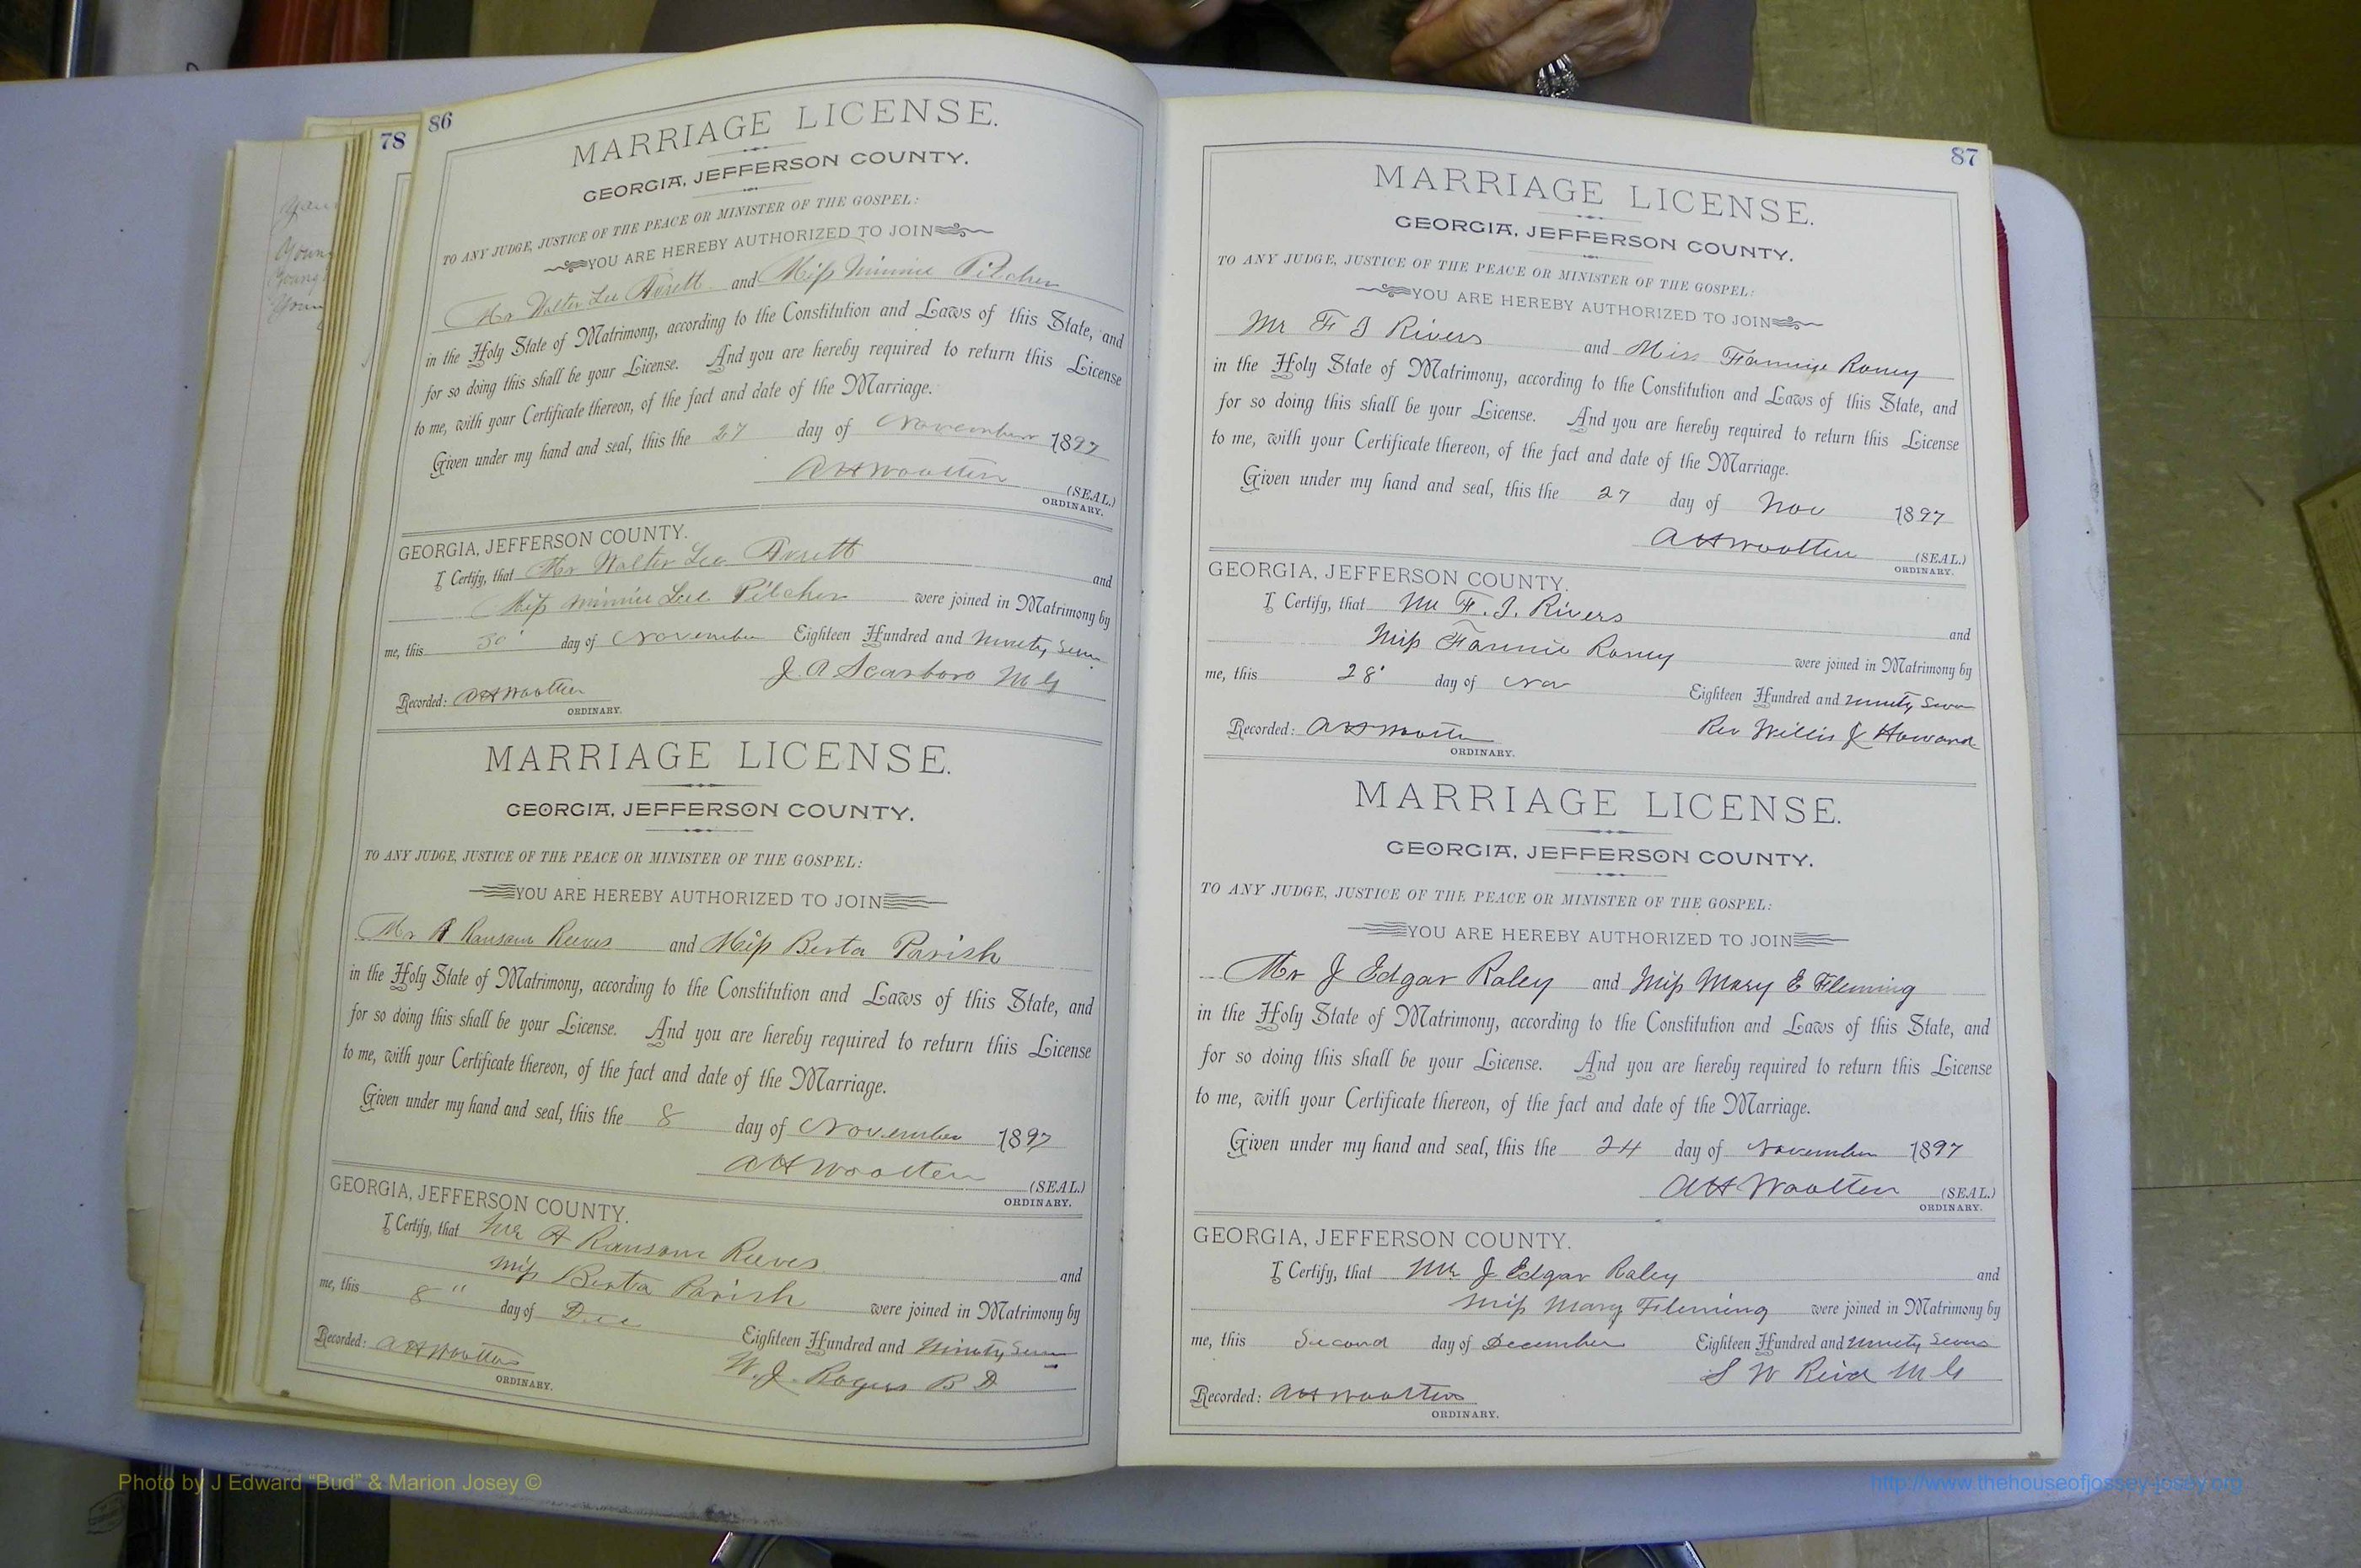 78
86
MARRIAGE LICENSE.
GEORGIA, JEFFERSON COUNTY.
TO ANY JUDGE, JUSTICE OF THE PEACE OR MINISTER OF THE GOSPEL:
YOU ARE HEREBY AUTHORIZED TO JOIN
Mr Walter Lee Avrett and Miss Minnie Pilcher
in the Holy State of Matrimony, according to the Constitution and Laws of this State, and
for so doing this shall be your License. And you are hereby required to return this License
to me, with your Certificate thereon, of the fact and date of the Marriage.
Given under my hand and seal, this the 27 day of November 1897
A H Wootten (SEAL.)
ORDINARY.
GEORGIA, JEFFERSON COUNTY.
I Certify, that Mr Walter Lee Avrett and
Miss Minnie Lee Pilcher were joined in Matrimony by
me, this 30 day of November Eighteen Hundred and Ninety Seven
J. A Scarboro M G
Recorded: A H Wootten
ORDINARY.
MARRIAGE LICENSE.
GEORGIA, JEFFERSON COUNTY.
TO ANY JUDGE, JUSTICE OF THE PEACE OR MINISTER OF THE GOSPEL:
YOU ARE HEREBY AUTHORIZED TO JOIN
Mr A Ransom Reeves and Miss Berta Parish
in the Holy State of Matrimony, according to the Constitution and Laws of this State, and
for so doing this shall be your License. And you are hereby required to return this License
to me, with your Certificate thereon, of the fact and date of the Marriage.
Given under my hand and seal, this the 8 day of November 1897
A H Wootten (SEAL.)
ORDINARY.
GEORGIA, JEFFERSON COUNTY.
I Certify, that Mr A Ransom Reeves and
Miss Berta Parish were joined in Matrimony by
me, this 8" day of Dec Eighteen Hundred and Ninety Seven
W. J. Rogers B D
Recorded: A H Wootten
ORDINARY.
87
MARRIAGE LICENSE.
GEORGIA, JEFFERSON COUNTY.
TO ANY JUDGE, JUSTICE OF THE PEACE OR MINISTER OF THE GOSPEL:
YOU ARE HEREBY AUTHORIZED TO JOIN
Mr F J Rivers and Miss Fannie Raney
in the Holy State of Matrimony, according to the Constitution and Laws of this State, and
for so doing this shall be your License. And you are hereby required to return this License
to me, with your Certificate thereon, of the fact and date of the Marriage.
Given under my hand and seal, this the 27 day of Nov 1897
A H Wootten (SEAL.)
ORDINARY.
GEORGIA, JEFFERSON COUNTY.
I Certify, that Mr F. J. Rivers and
Miss Fannie Raney were joined in Matrimony by
me, this 28 day of Nov Eighteen Hundred and Ninety Seven
Rev Willis J Howard
Recorded: A H Wootten
ORDINARY.
MARRIAGE LICENSE.
GEORGIA, JEFFERSON COUNTY.
TO ANY JUDGE, JUSTICE OF THE PEACE OR MINISTER OF THE GOSPEL:
YOU ARE HEREBY AUTHORIZED TO JOIN
Mr J Edgar Raley and Miss Mary E Fleming
in the Holy State of Matrimony, according to the Constitution and Laws of this State, and
for so doing this shall be your License. And you are hereby required to return this License
to me, with your Certificate thereon, of the fact and date of the Marriage.
Given under my hand and seal, this the 24 day of November 1897
A H Wootten (SEAL.)
ORDINARY.
GEORGIA, JEFFERSON COUNTY.
I Certify, that Mr J Edgar Raley and
Miss Mary Fleming were joined in Matrimony by
me, this Second day of December Eighteen Hundred and Ninety Seven
S W Reid M G
Recorded: A H Wootten
ORDINARY.
Photo by J Edward “Bud” & Marion Josey ©
http://www.thehouseofjossey-josey.org